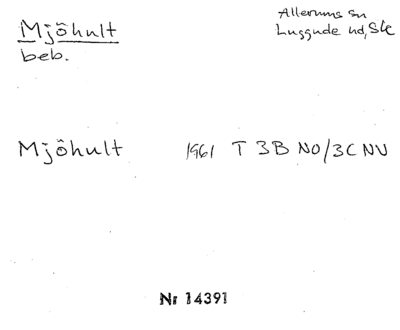 Mjöhult
beb.
Allerums sn
Luggude hd, Sk
Mjöhult 1961 T 3B NO/3C NV
Nr 14391